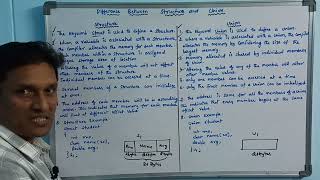 Difference Between Structure and Union
Structure
1. The keyword struct is used to define a structure
2. When a variable is associated with a structure,
the compiler allocates the memory for each member
3. Each member within a structure is assigned
unique storage area of location
4. Altering the value of a member will not affect
other members of the structure
5. Individual member can be accessed at a time
6. Several members of a structure can initialize
at once
7. The address of each member will be in ascending
order. This indicates that memory for each member
will start at different offset value
8. Structure Example
struct student
{
int rno;
char name[20];
double avg;
} s1;
s1
Rno Name Avg
Union
1. The keyword union is used to define a union
2. When a variable is associated with a union, the compiler
allocates the memory by considering the size of the
largest memory
3. Memory allocated is shared by individual members
of union
4. Altering the value of any of the member will alter
other member values
5. Only one member can be accessed at a time
6. Only the first member of a union can be initialized
7. The address is same for all the members of a union
This indicates that every member begins at the same
offset value
8. Union Example
Union student
{
int rno;
char name[20];
double avg;
} u1;
u1